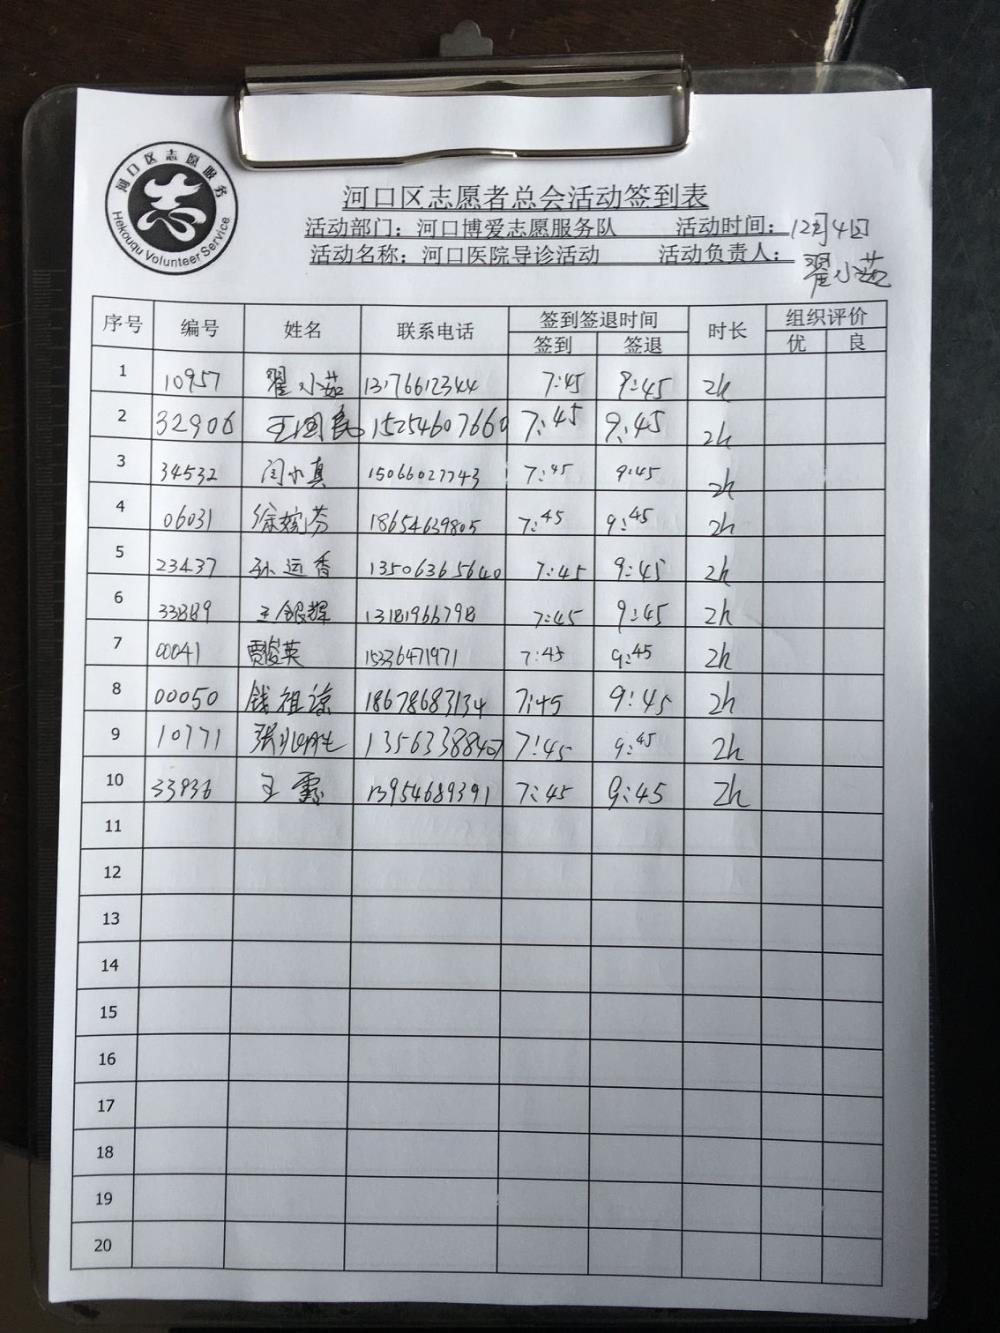 河口区志愿服务
志
Hekouqu Volunteer Service
河口区志愿者总会活动签到表
活动部门：河口博爱志愿服务队 活动时间：12月4日
活动名称：河口医院导诊活动 活动负责人：翟小茹
序号 编号 姓名 联系电话 签到签退时间 时长 组织评价
签到 签退 优 良
1 10957 翟小茹 13176612344 7:45 9:45 2h
2 32906 王国民 15254607660 7:45 9:45 2h
3 34532 闫小真 15066027743 7:45 9:45 2h
4 06031 徐婉芬 18654639805 7:45 9:45 2h
5 23437 孙运香 13506365640 7:45 9:45 2h
6 33889 王银辉 13181966798 7:45 9:45 2h
7 00041 贾俊英 15336471971 7:45 9:45 2h
8 00050 钱祖谅 18678683134 7:45 9:45 2h
9 10771 7:45 9:45 2h
10 33936 王 13954689391 7:45 9:45 2h
11
12
13
14
15
16
17
18
19
20